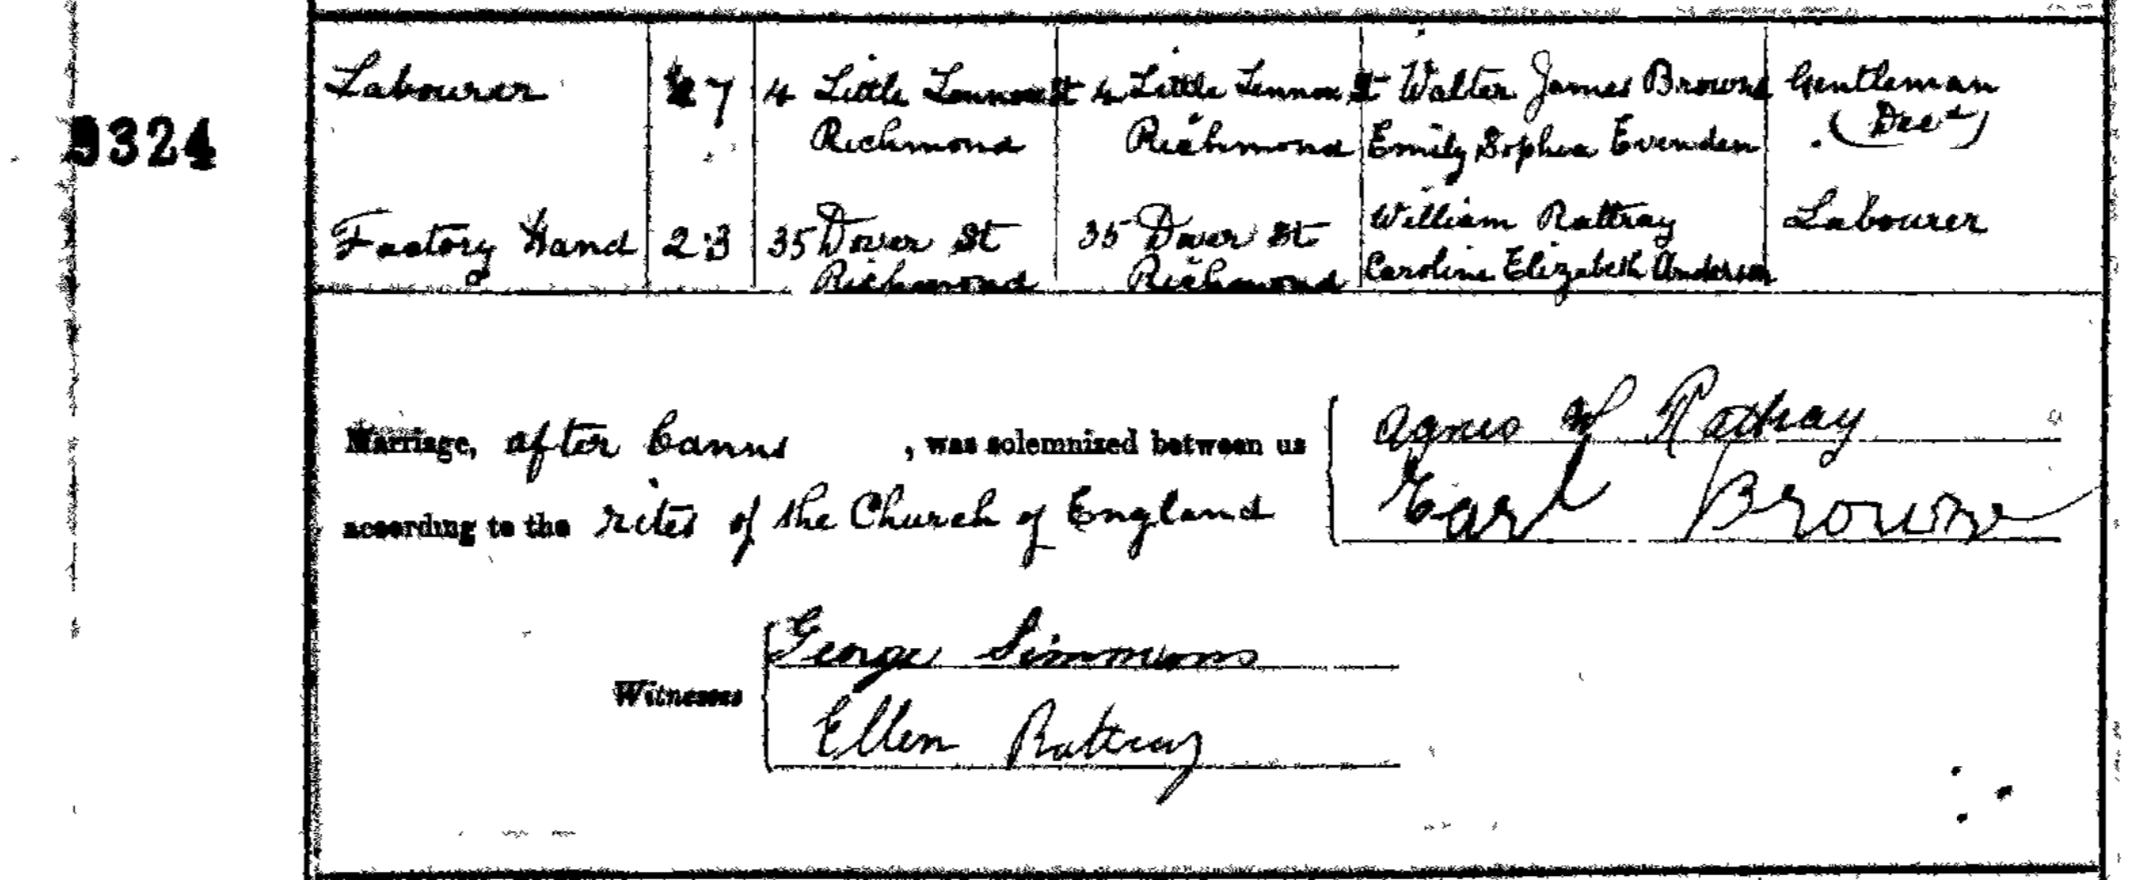 Labourer 27 4 Little Lennox St 4 Little Lennox St Walter James Browne Gentleman
Richmond Richmond Emily Sophia Evenden (Decd)
9324
Factory Hand 23 35 Dover St 35 Dover St William Rattray Labourer
Richmond Richmond Caroline Elizabeth Anderson
Marriage, after banns , was solemnized between us Agnes Rattray
according to the rites of the Church of England Earl Browne
George Simmons
Witnesses
Ellen Rattray